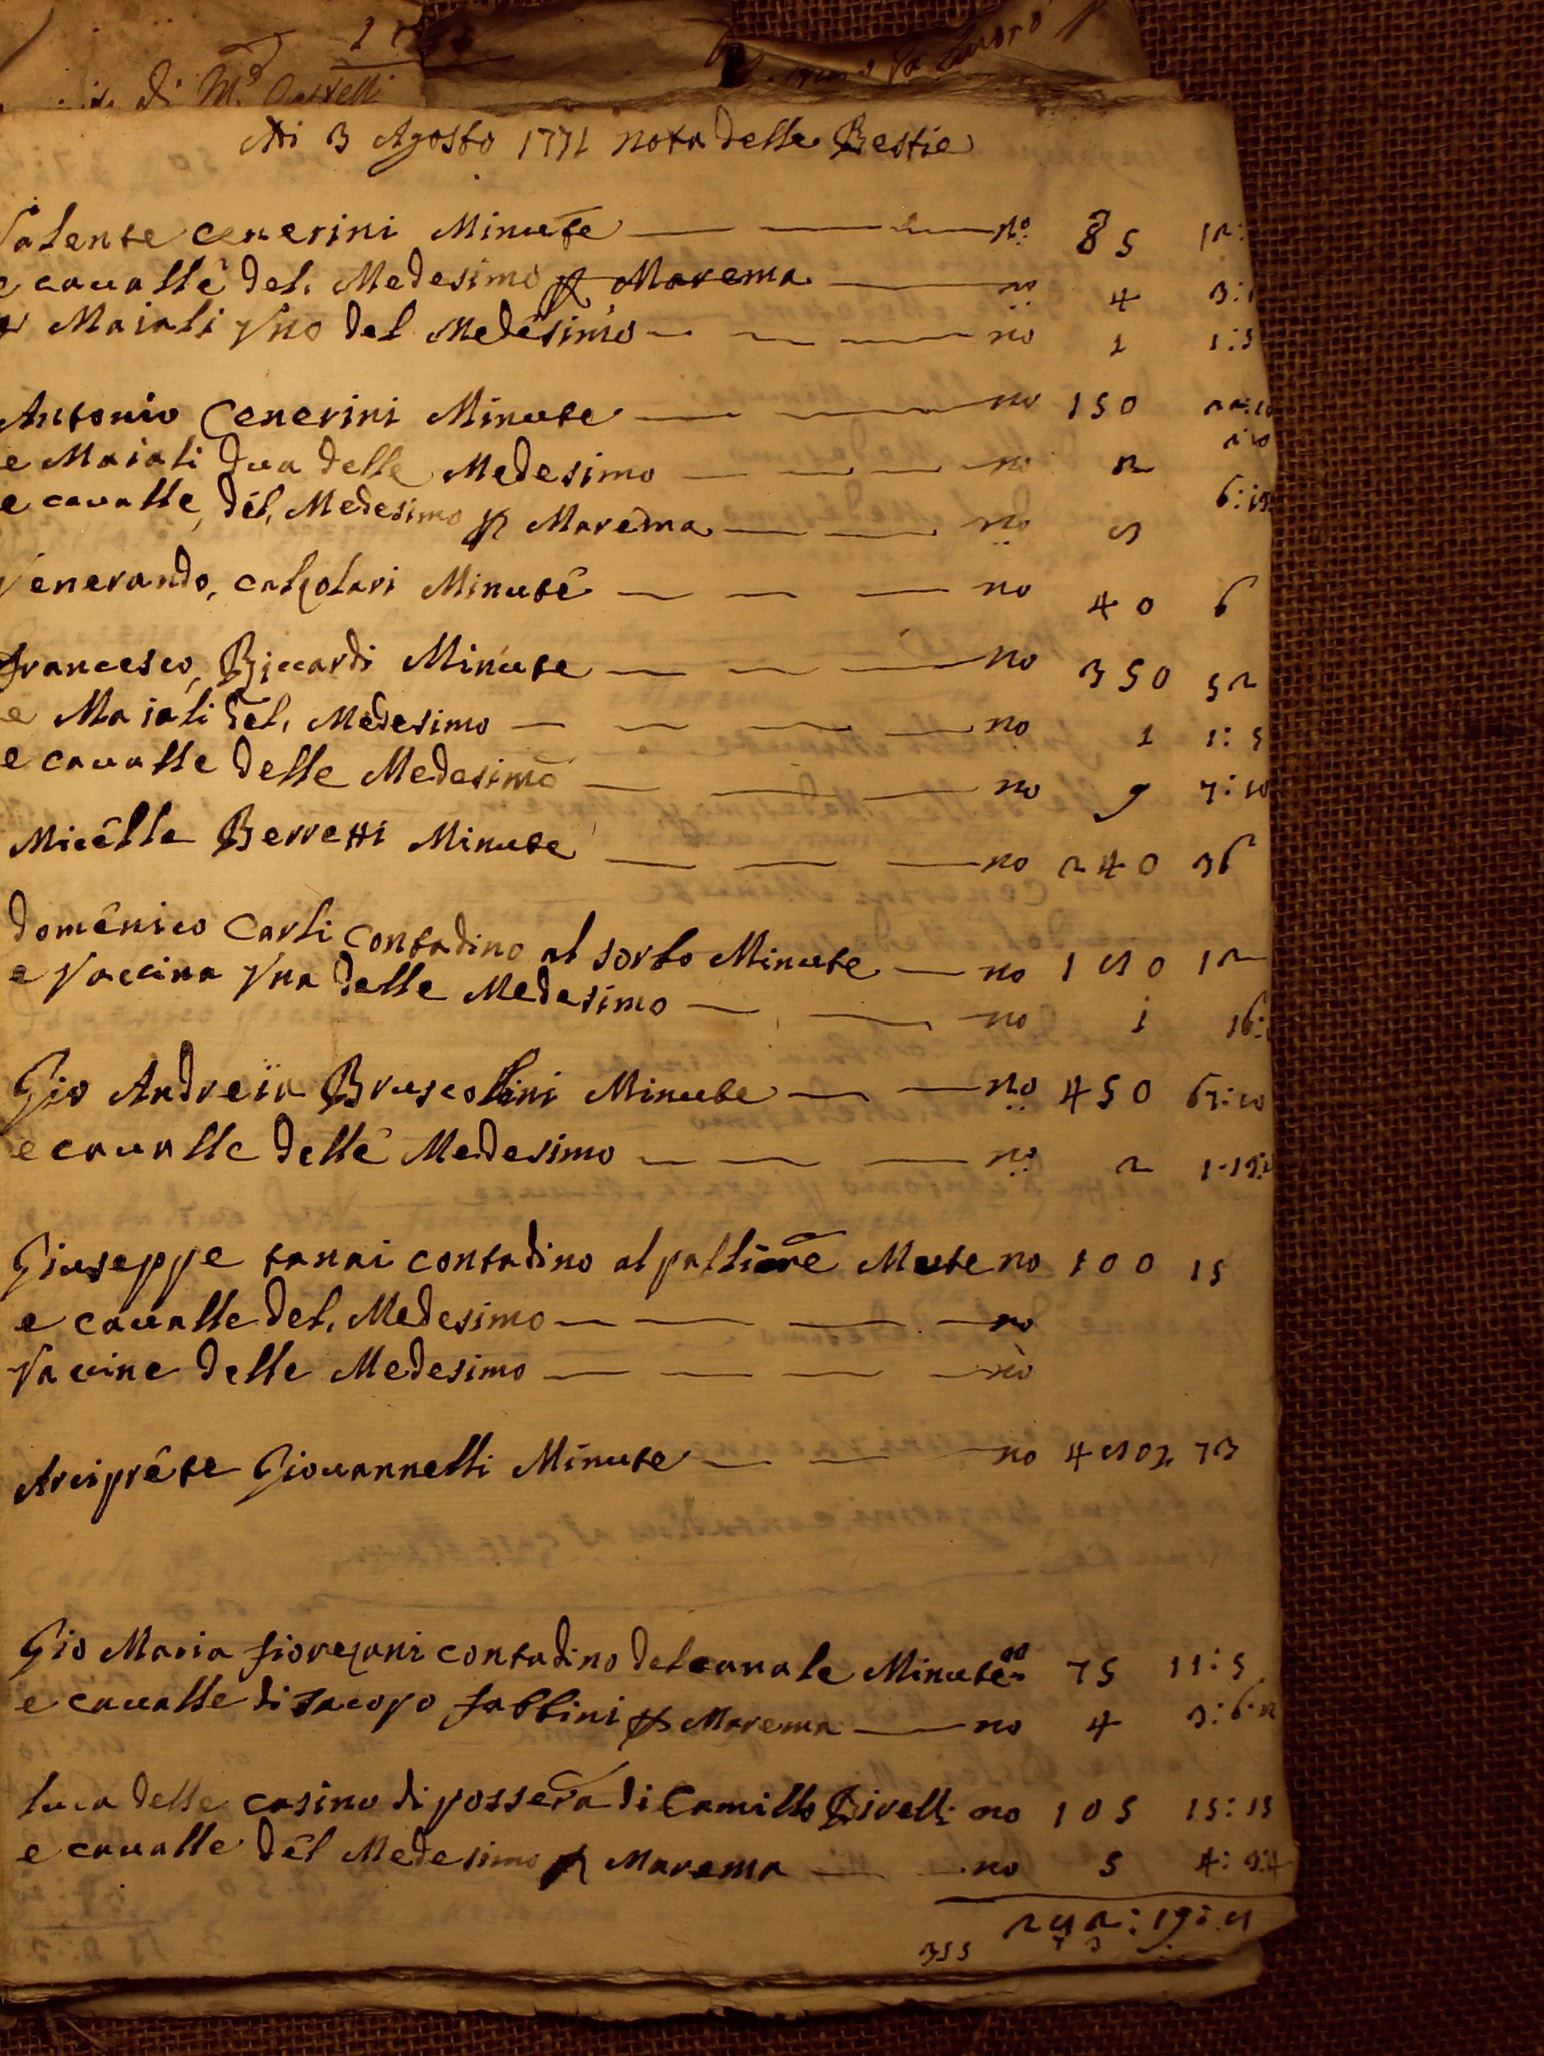 di M.º
Adi 3 Agosto 1771 nota delle Bestie
Valente Cenerini Minute nº 85 12:
e cavalle del Medesimo p Marema no 4 3:
Maiali Vno del Medesimo no 1 1:5
Antonio Cenerini Minute no 150 22:10
e Maiali Dua delle Medesimo no 2 2:10
e cavalle del Medesimo p Marema no 6:13
Venerando calzolari Minute no 40 6
francesco Biccardi Minute no 350 52
e Maiali del Medesimo no 1 1:5
e cavalle delle Medesimo no 9 7:10
Micelle Berretti Minute no 240 36
domenico Carli contadino al sorbo Minute no 12
e Vaccina Vna delle Medesimo no 1 16:
Gio Andreia Bruscolini Minute no 450 67:10
e cavalle delle Medesimo no 2 1-13:
Giuseppe tanai contadino al Mute no 100 15
e cavalle del Medesimo no
Vacine delle Medesimo no
Arciprete Giovannelli Minute no 73
Gio Maria fiorezani contadino del canale Minute 75 11:5
e cavalle di Jacopo fabbini p Marema no 4 3:6:
luca delle casino di possera di Camillo Birelli no 105 15:15
e cavalle del Medesimo p Marema no 5 4:
355